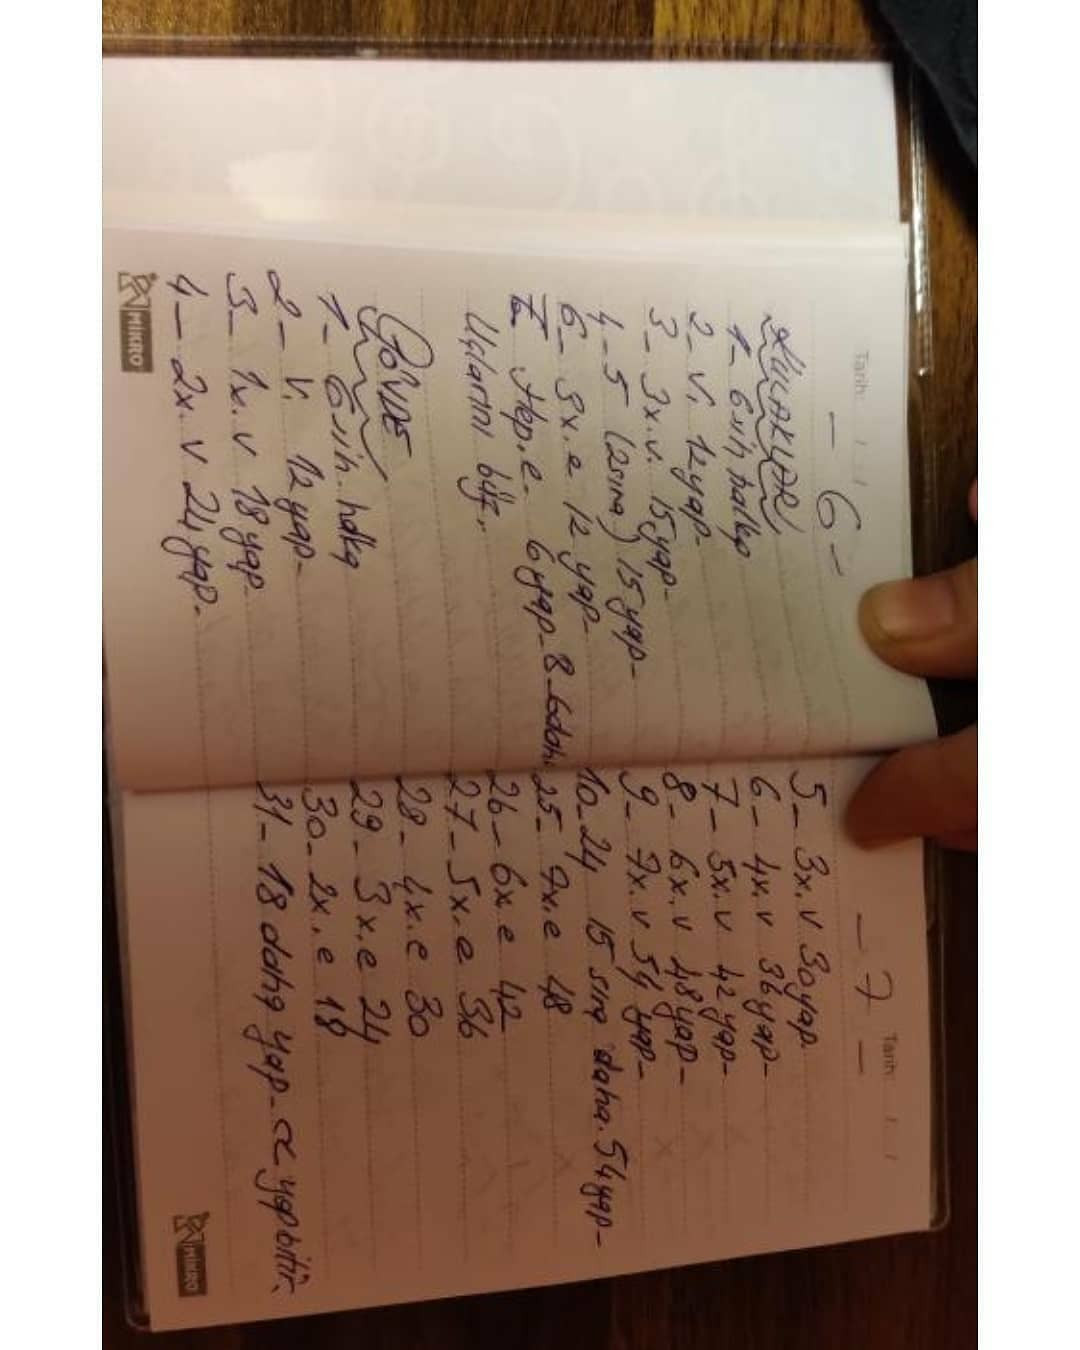 Tarih: / /
- 6 -
KULAKLAR
1- 6 sih. halka
2- v. 12 yap-
3- 3x.v. 15 yap-
4- 5 (2 sıra) 15 yap-
6- 3x.e 12 yap-
7- Hep.e. 6 yap-8-6daha
Uçlarını bğz.
GÖVDE
1- 6 sih. halka
2- v. 12 yap-
3- 1x.v 18 yap-
4- 2x.v 24 yap-
MIKRO
Tarih: / /
- 7 -
5- 3x.v 30 yap
6- 4x.v 36 yap-
7- 5x.v 42 yap-
8- 6x.v 48 yap-
9- 7x.v 54 yap-
10-24 15 sıra daha.54 yap-
25- 7x.e 48
26- 6x.e 42
27- 5x.e 36
28- 4x.e 30
29- 3x.e 24
30- 2x.e 18
31- 18 daha yap-
MIKRO